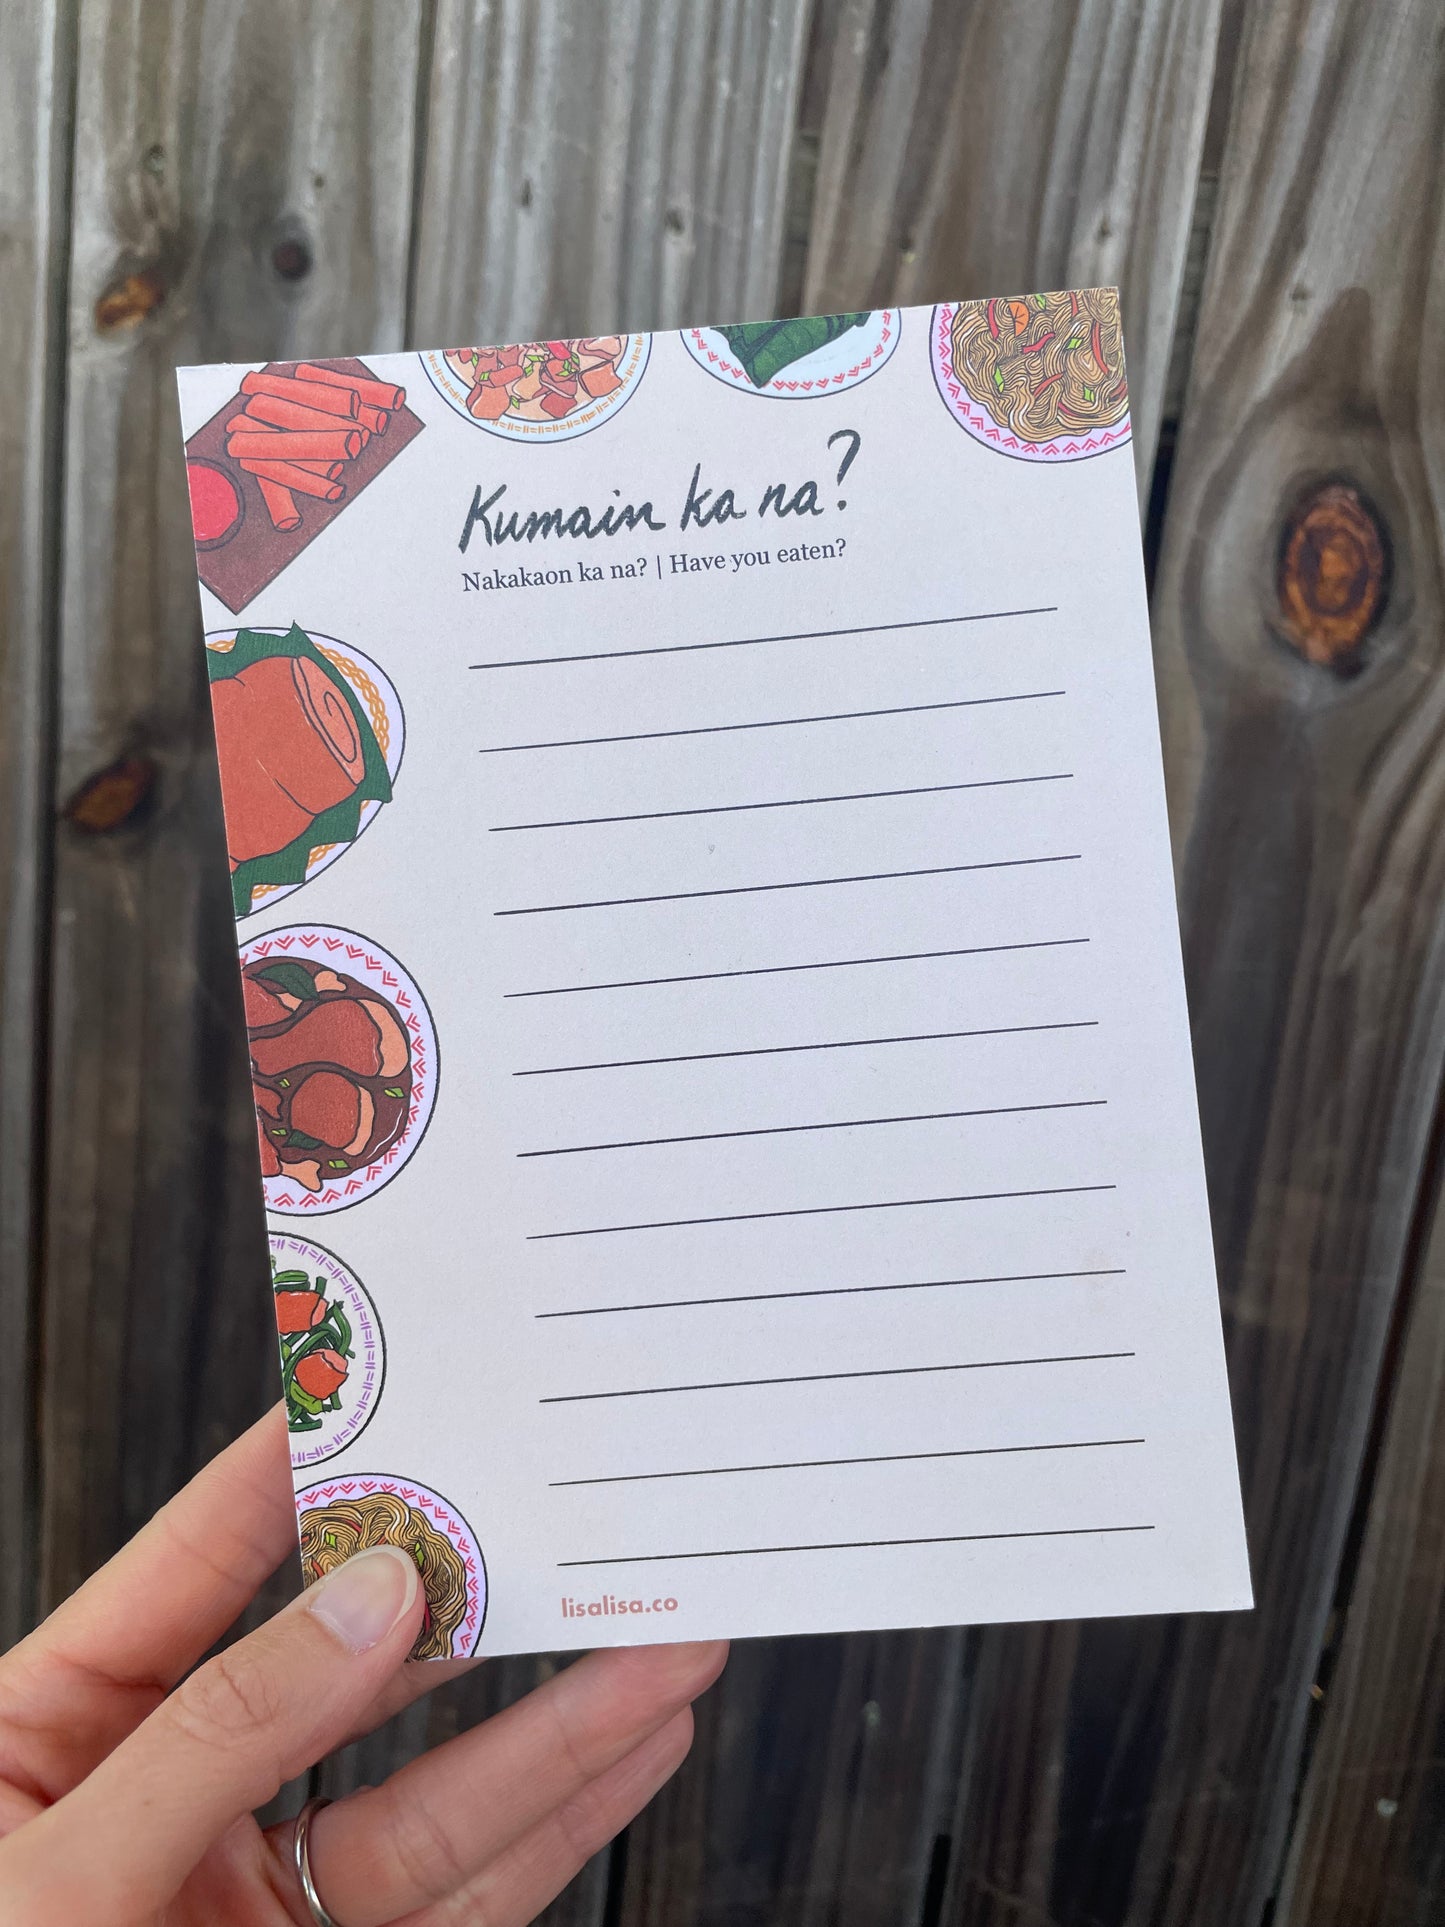 Kumain ka na?
Nakakaon ka na? | Have you eaten?
lisalisa.co